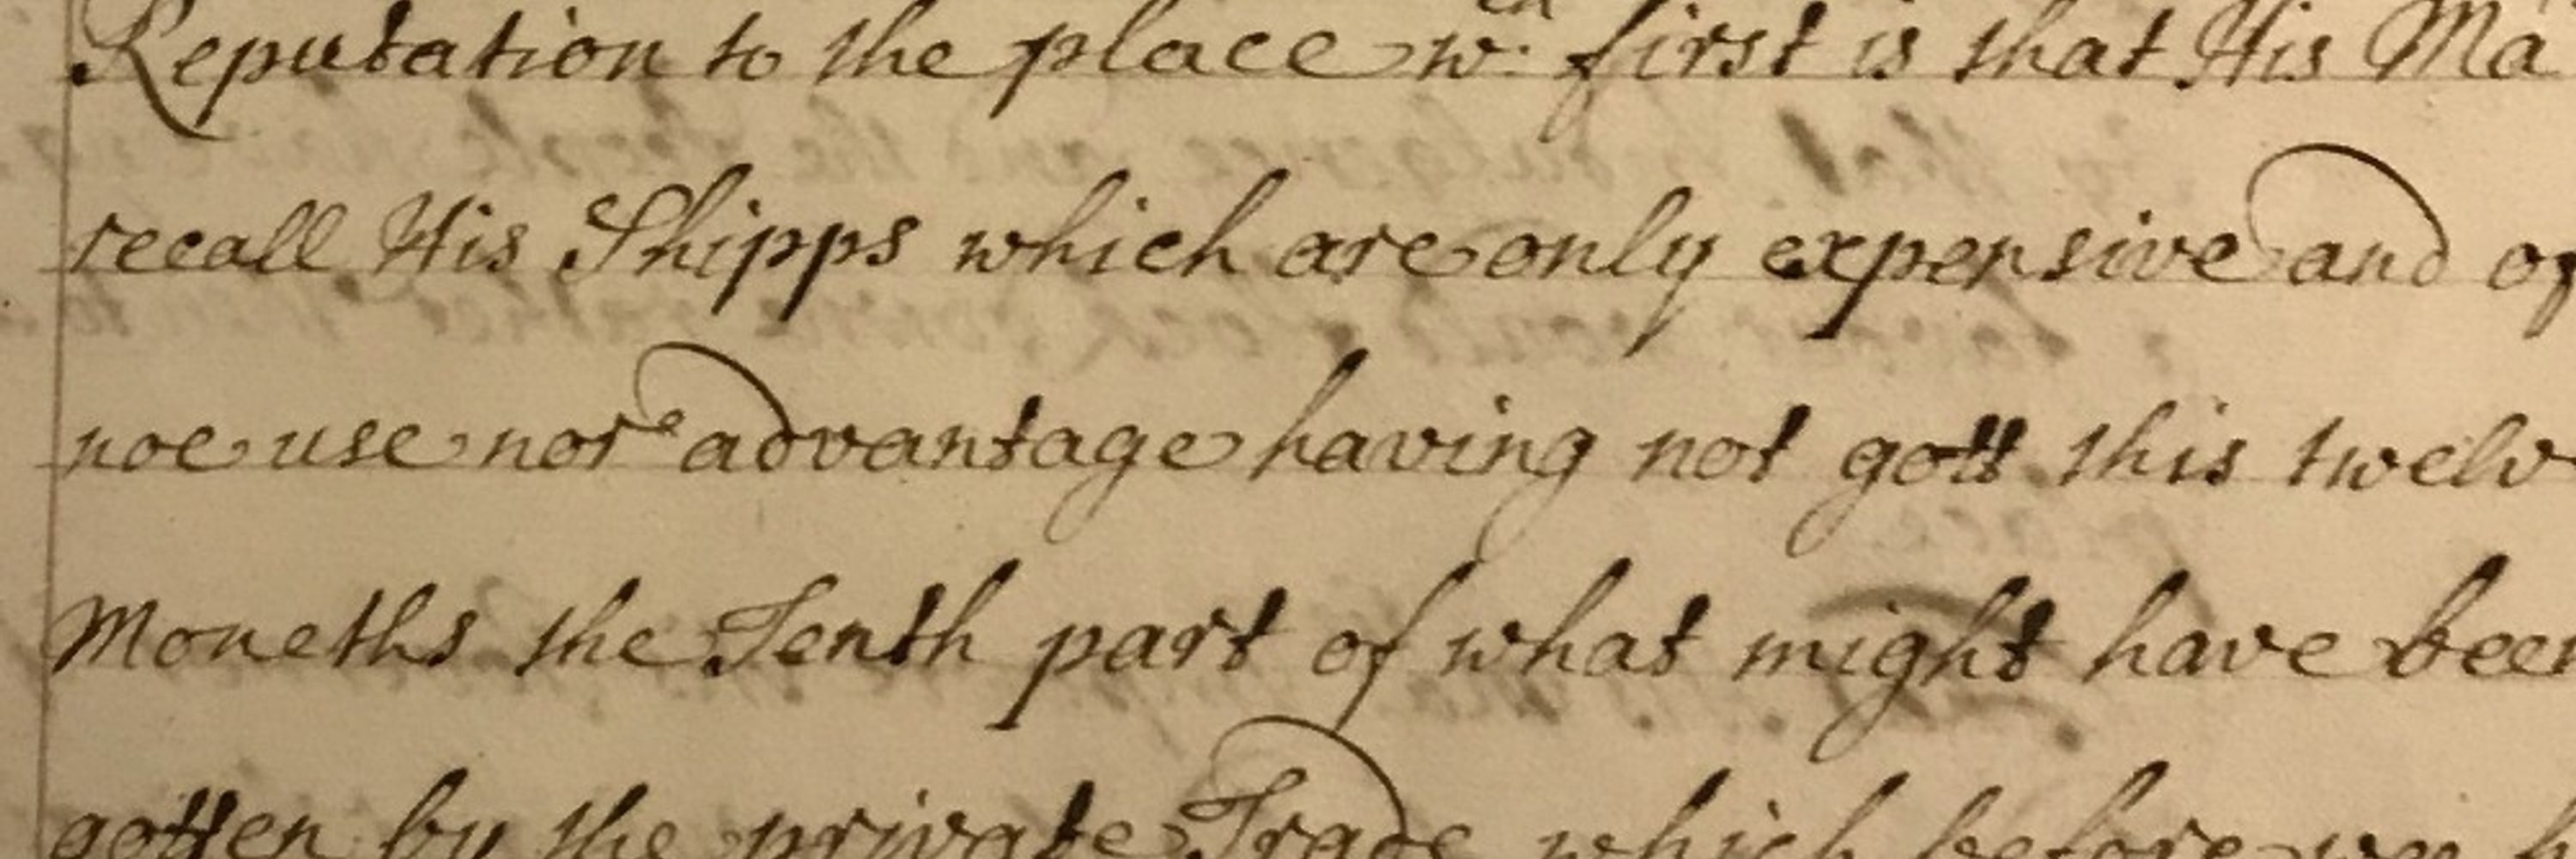 Reputation to the place wch first is that His Ma
recall His Shipps which are only expensive and of
noe use nor advantage having not gott this twelv
Moneths the Tenth part of what might have been
gotten by the private Trade which before wee